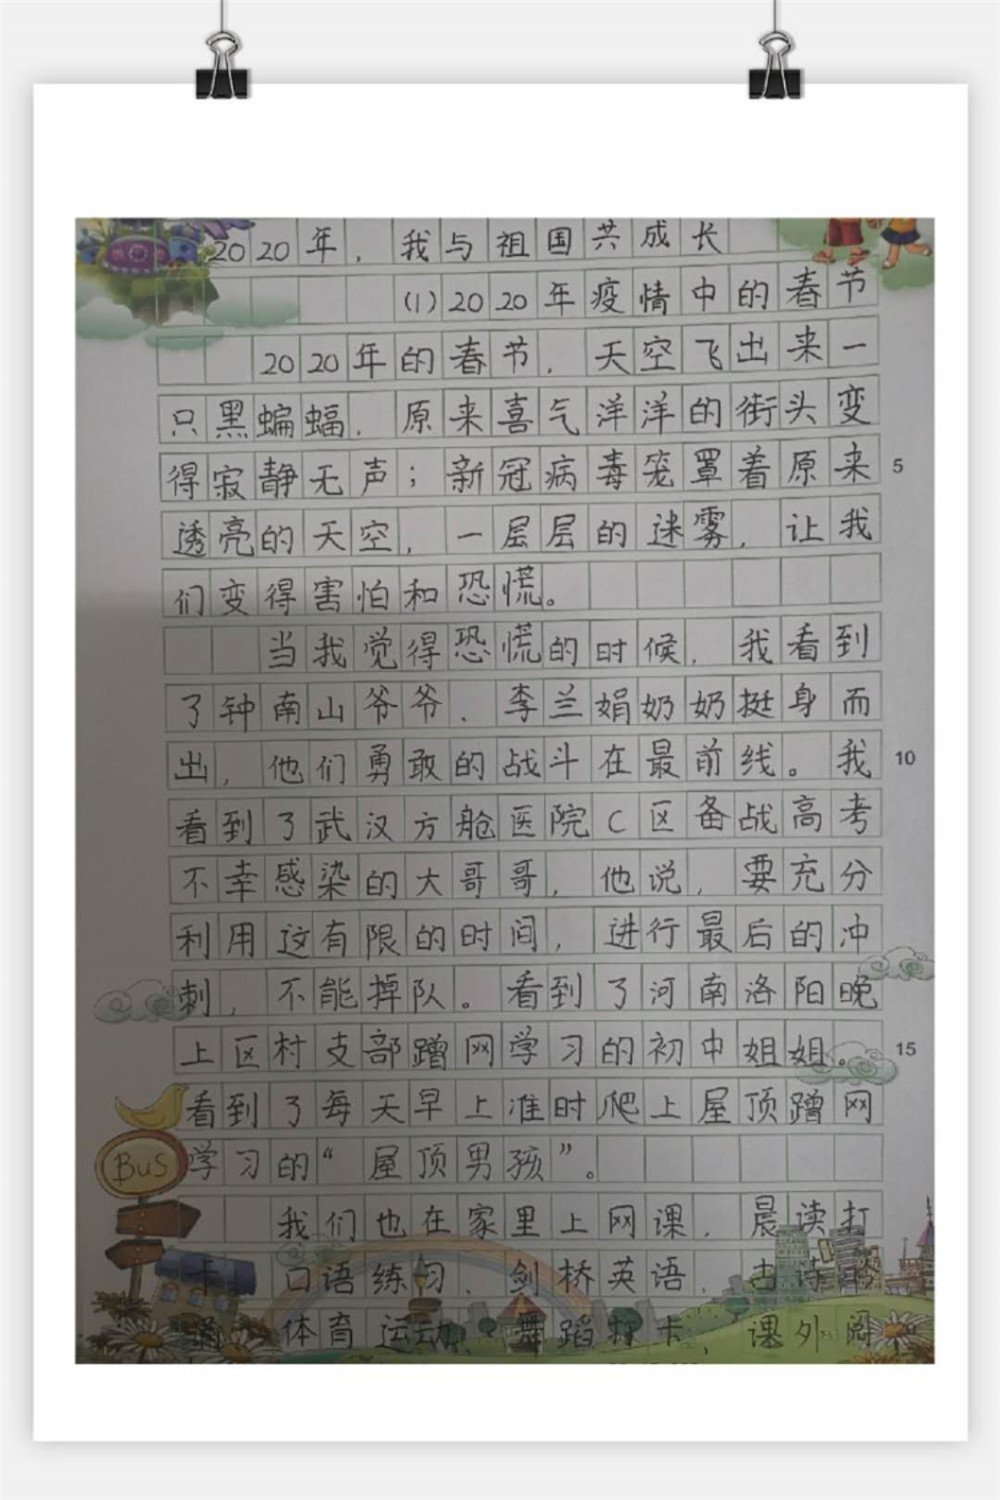 2020年，我与祖国共成长
(1)2020年疫情中的春节
2020年的春节，天空飞出来一
只黑蝙蝠，原来喜气洋洋的街头变
得寂静无声；新冠病毒笼罩着原来 5
透亮的天空，一层层的迷雾，让我
们变得害怕和恐慌。
当我觉得恐慌的时候，我看到
了钟南山爷爷、李兰娟奶奶挺身而
出，他们勇敢的战斗在最前线。我 10
看到了武汉方舱医院C区备战高考
不幸感染的大哥哥，他说，要充分
利用这有限的时间，进行最后的冲
刺，不能掉队。看到了河南洛阳晚
上区村支部蹭网学习的初中姐姐。 15
看到了每天早上准时爬上屋顶蹭网
BUS
学习的“屋顶男孩”。
我们也在家里上网课，晨读打
卡、口语练习、剑桥英语、古诗
体育运动、舞蹈打卡、课外阅